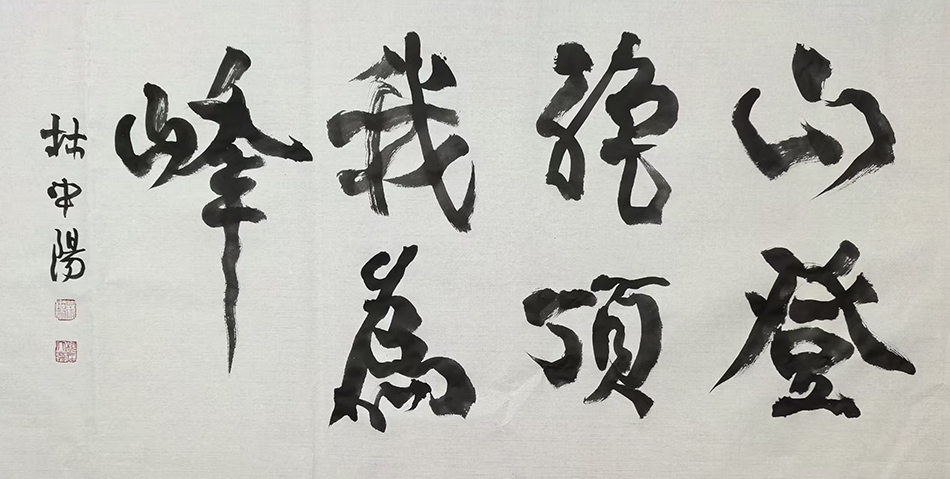 山登
絶頂
我為
峰
林中陽